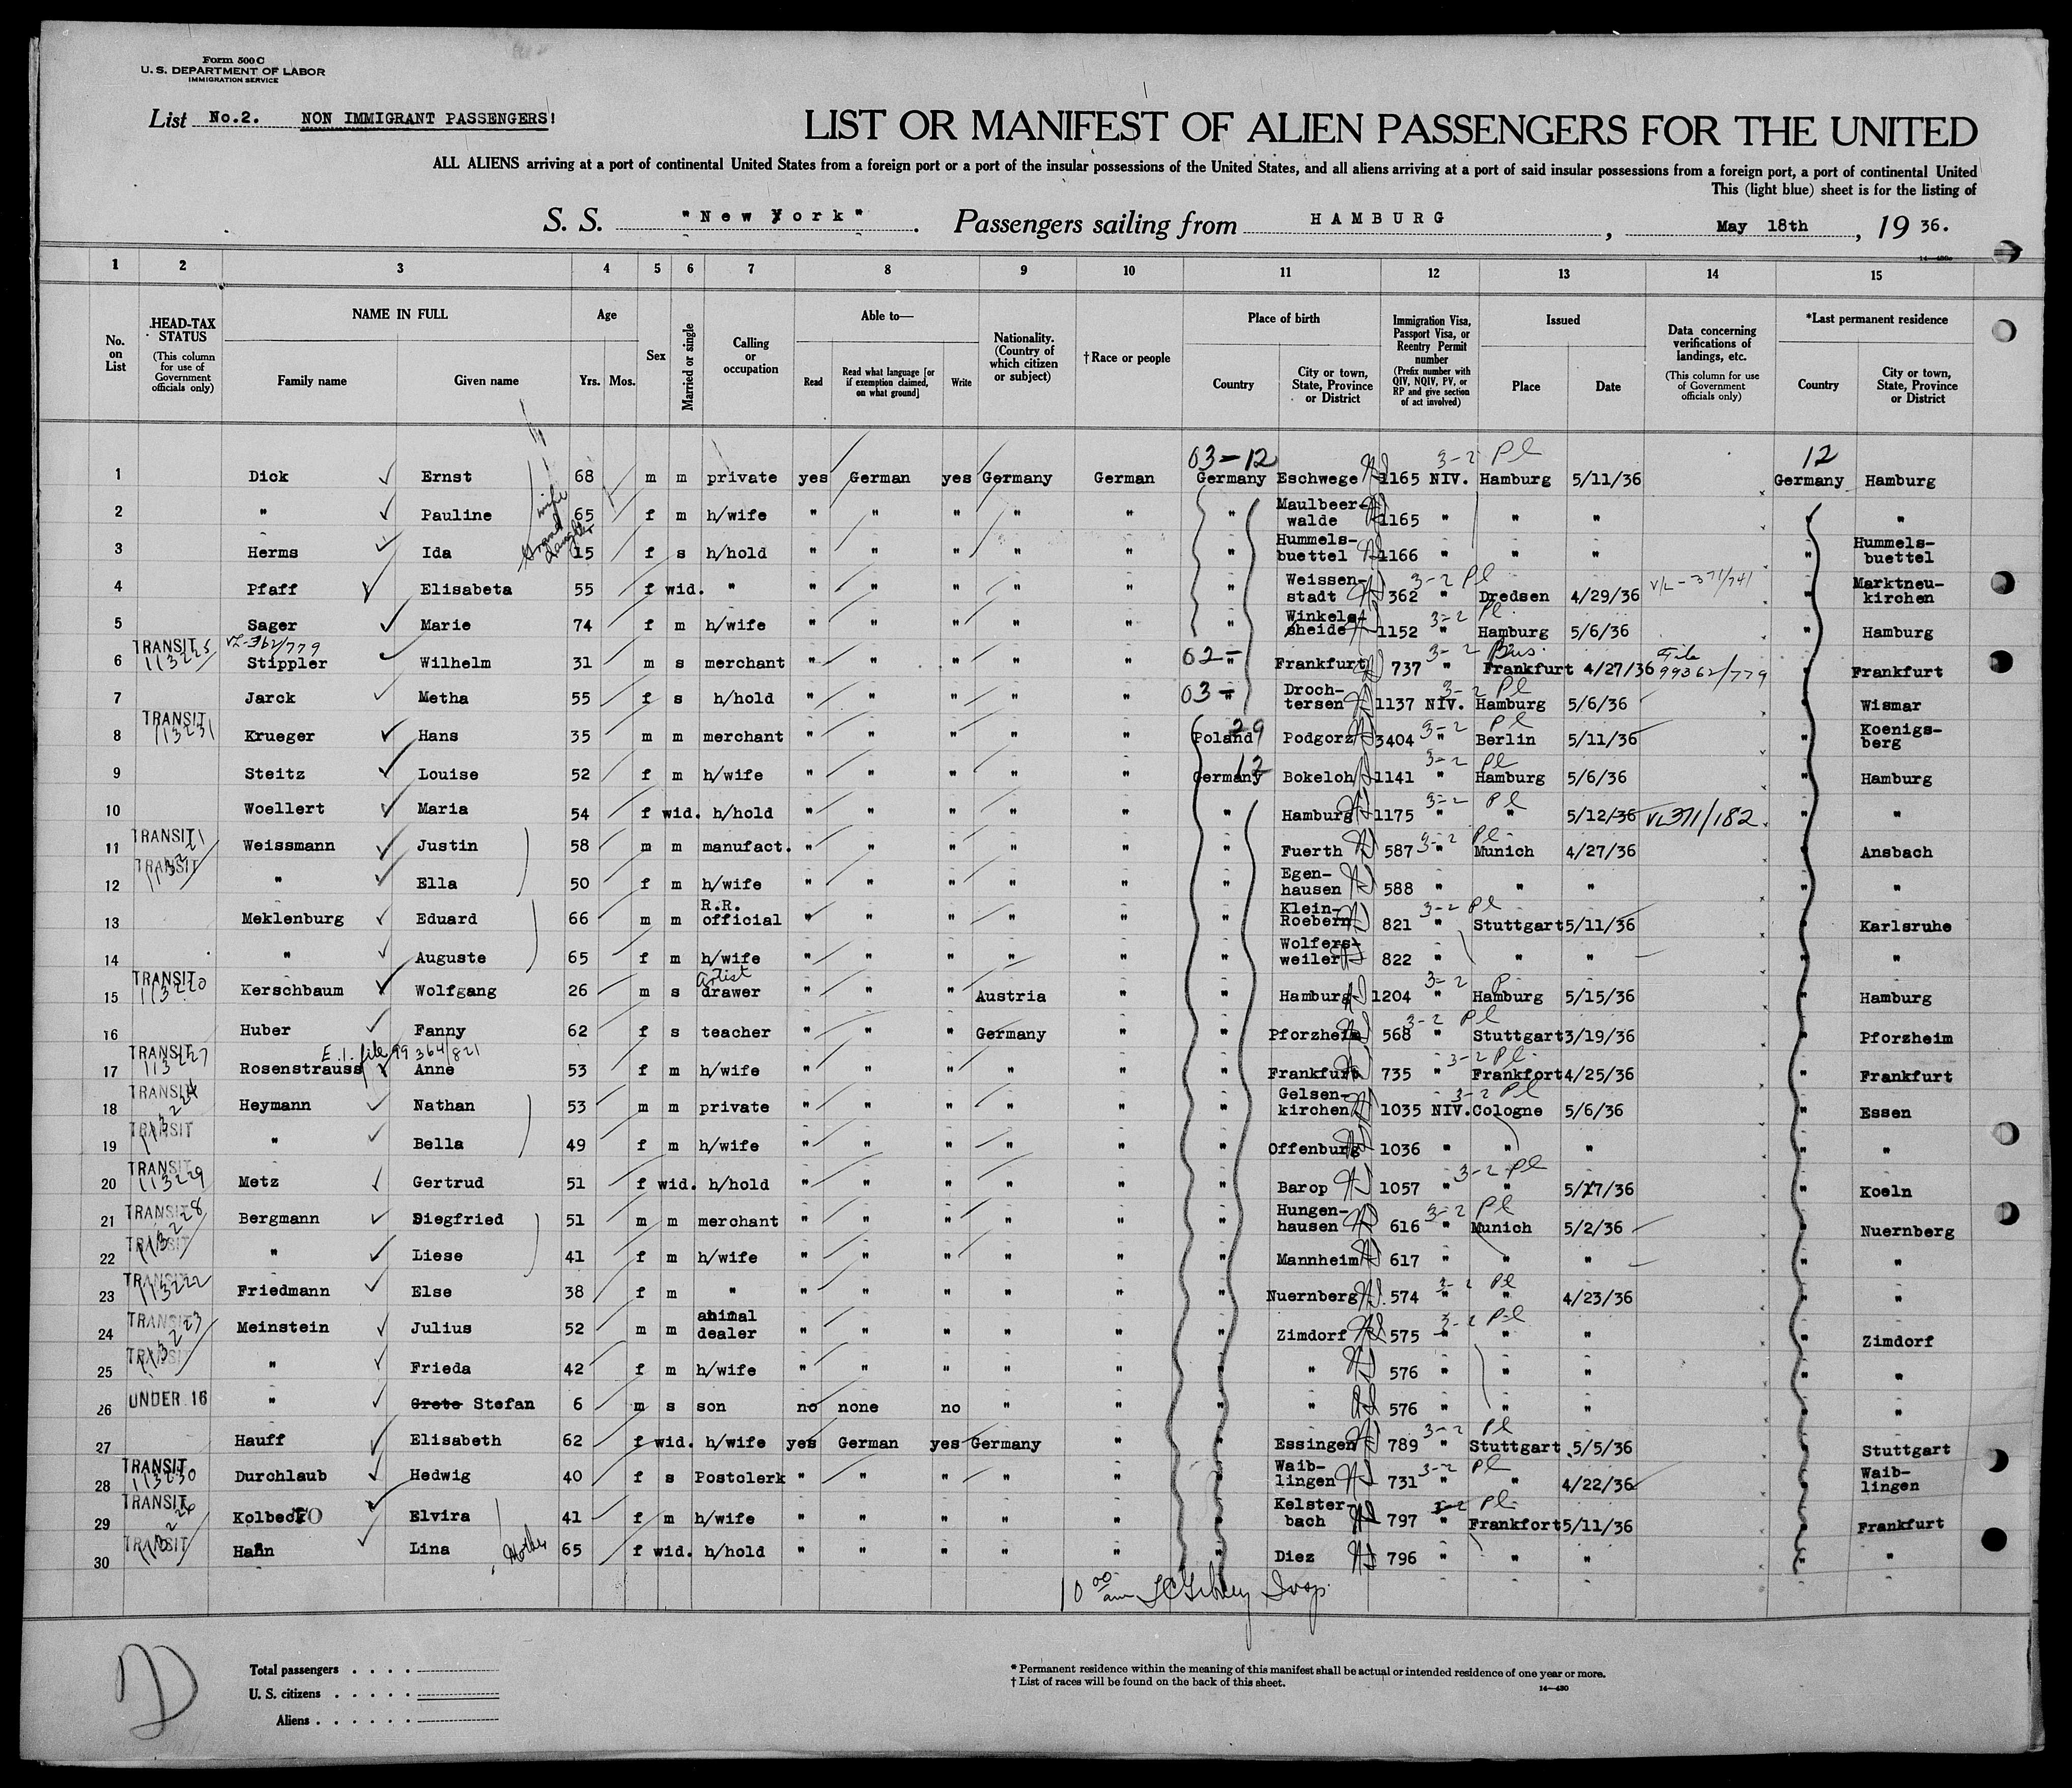 Form 500 C
U. S. DEPARTMENT OF LABOR
IMMIGRATION SERVICE
List No.2. NON IMMIGRANT PASSENGERS!
LIST OR MANIFEST OF ALIEN PASSENGERS FOR THE UNITED
ALL ALIENS arriving at a port of continental United States from a foreign port or a port of the insular possessions of the United States, and all aliens arriving at a port of said insular possessions from a foreign port, a port of continental United
This (light blue) sheet is for the listing of
S. S. "New York". Passengers sailing from HAMBURG, May 18th, 1936.
1 2 3 4 5 6 7 8 9 10 11 12 13 14 15
No. on List
HEAD-TAX STATUS
(This column for use of Government officials only)
NAME IN FULL
Family name Given name
Age
Yrs. Mos.
Sex
Married or single
Calling or occupation
Able to—
Read
Read what language [or if exemption claimed, on what ground]
Write
Nationality. (Country of which citizen or subject)
†Race or people
Place of birth
Country
City or town, State, Province or District
Immigration Visa, Passport Visa, or Reentry Permit number
(Prefix number with QIV, NQIV, PV, or RP and give section of act involved)
Issued
Place Date
Data concerning verifications of landings, etc.
(This column for use of Government officials only)
*Last permanent residence
Country
City or town, State, Province or District
03-12 3-2 Pl 12
1 Dick Ernst 68 m m private yes German yes Germany German Germany Eschwege 1165 NIV. Hamburg 5/11/36 Germany Hamburg
2 " Pauline wife 65 f m h/wife " " " " " " Maulbeer-walde 1165 " " " " "
3 Herms Ida Grand daughter 15 f s h/hold " " " " " " Hummels-buettel 1166 " " " " Hummels-buettel
4 Pfaff Elisabeta 55 f wid. " " " " " " " Weissen-stadt 362 " 3-2 Pl Dredsen 4/29/36 V/L-371/741 " Marktneu-kirchen
5 Sager Marie 74 f m h/wife " " " " " " Winkels-heide 1152 3-2 Pl Hamburg 5/6/36 " Hamburg
TRANSIT 113225 VL-362/779
6 Stippler Wilhelm 31 m s merchant " " " " " 02- " Frankfurt 737 " 3-2 Bus. Frankfurt 4/27/36 File 99362/779 " Frankfurt
7 Jarck Metha 55 f s h/hold " " " " " 03- " Droch-tersen 1137 NIV. 3-2 Pl Hamburg 5/6/36 " Wismar
TRANSIT 113231
8 Krueger Hans 35 m m merchant " " " " " Poland 29 Podgorz 3404 " 3-2 Pl Berlin 5/11/36 " Koenigs-berg
9 Steitz Louise 52 f m h/wife " " " " " Germany 12 Bokeloh 1141 " 3-2 Pl Hamburg 5/6/36 " Hamburg
10 Woellert Maria 54 f wid. h/hold " " " " " " Hamburg 1175 " 3-2 Pl " 5/12/36 VL371/182 " "
TRANSIT
11 Weissmann Justin 58 m m manufact. " " " " " " Fuerth 587 " 3-2 Pl Munich 4/27/36 " Ansbach
TRANSIT 113221
12 " Ella 50 f m h/wife " " " " " " Egen-hausen 588 " " " " "
13 Meklenburg Eduard 66 m m R.R. official " " " " " " Klein-Roebern 821 " 3-2 Pl Stuttgart 5/11/36 " Karlsruhe
14 " Auguste 65 f m h/wife " " " " " " Wolfers-weiler 822 " " " " "
TRANSIT 113220
15 Kerschbaum Wolfgang 26 m s Artist drawer " " " Austria " " Hamburg 1204 " 3-2 P Hamburg 5/15/36 " Hamburg
16 Huber Fanny 62 f s teacher " " " Germany " " Pforzheim 568 " 3-2 Pl Stuttgart 3/19/36 " Pforzheim
TRANSIT 113227 E.I. file 99364/821
17 Rosenstrauss Anne 53 f m h/wife " " " " " " Frankfurt 735 " 3-2 Pl Frankfort 4/25/36 " Frankfurt
TRANSIT
18 Heymann Nathan 53 m m private " " " " " " Gelsen-kirchen 1035 NIV. 3-2 Pl Cologne 5/6/36 " Essen
TRANSIT 113224
19 " Bella 49 f m h/wife " " " " " " Offenburg 1036 " " " " "
TRANSIT 113229
20 Metz Gertrud 51 f wid. h/hold " " " " " " Barop 1057 " 3-2 Pl " 5/17/36 " Koeln
TRANSIT
21 Bergmann Siegfried 51 m m merchant " " " " " " Hungen-hausen 616 " 3-2 Pl Munich 5/2/36 " Nuernberg
TRANSIT 113228
22 " Liese 41 f m h/wife " " " " " " Mannheim 617 " " " " "
TRANSIT 113222
23 Friedmann Else 38 f m " " " " " " " Nuernberg 574 " 3-2 Pl " 4/23/36 " "
TRANSIT
24 Meinstein Julius 52 m m animal dealer " " " " " " Zimdorf 575 " 3-2 Pl " " " Zimdorf
TRANSIT 113223
25 " Frieda 42 f m h/wife " " " " " " " 576 " " " " "
UNDER 16
26 " Grete Stefan 6 m s son no none no " " " " 576 " " " " "
27 Hauff Elisabeth 62 f wid. h/wife yes German yes Germany " " Essingen 789 " 3-2 Pl Stuttgart 5/5/36 " Stuttgart
TRANSIT 113230
28 Durchlaub Hedwig 40 f s Postclerk " " " " " " Waib-lingen 731 " 3-2 Pl " 4/22/36 " Waib-lingen
TRANSIT
29 Kolbeck Elvira 41 f m h/wife " " " " " " Kelster-bach 797 " 3-2 Pl Frankfort 5/11/36 " Frankfurt
TRANSIT 113226
30 Hahn Lina Mother 65 f wid. h/hold " " " " " " Diez 796 " " " " "
10 00 am
Total passengers . . . .
U. S. citizens . . . . .
Aliens . . . . . .
* Permanent residence within the meaning of this manifest shall be actual or intended residence of one year or more.
† List of races will be found on the back of this sheet.
14—430